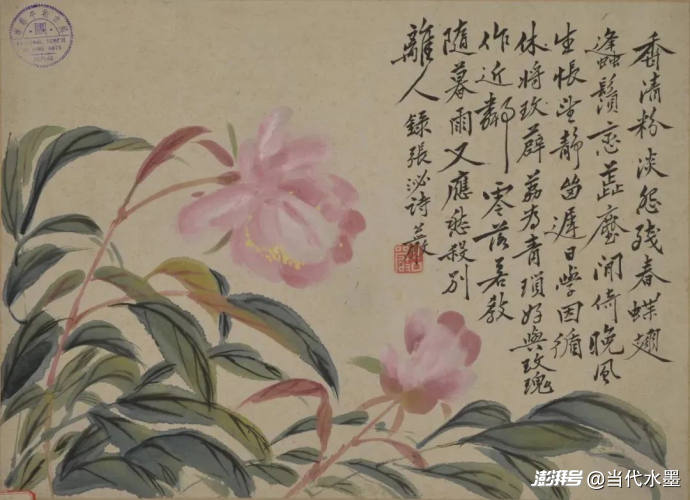 香清粉淡怨殘春蝶翅
蠭鬚戀蕋塵閒倚晚風
生悵望靜留遲日學因循
休將玫薜荔為青瑣好與玫瑰
作近鄰零落若教
隨暮雨又應愁殺別
離人 錄張泌詩
國
澎湃号@当代水墨